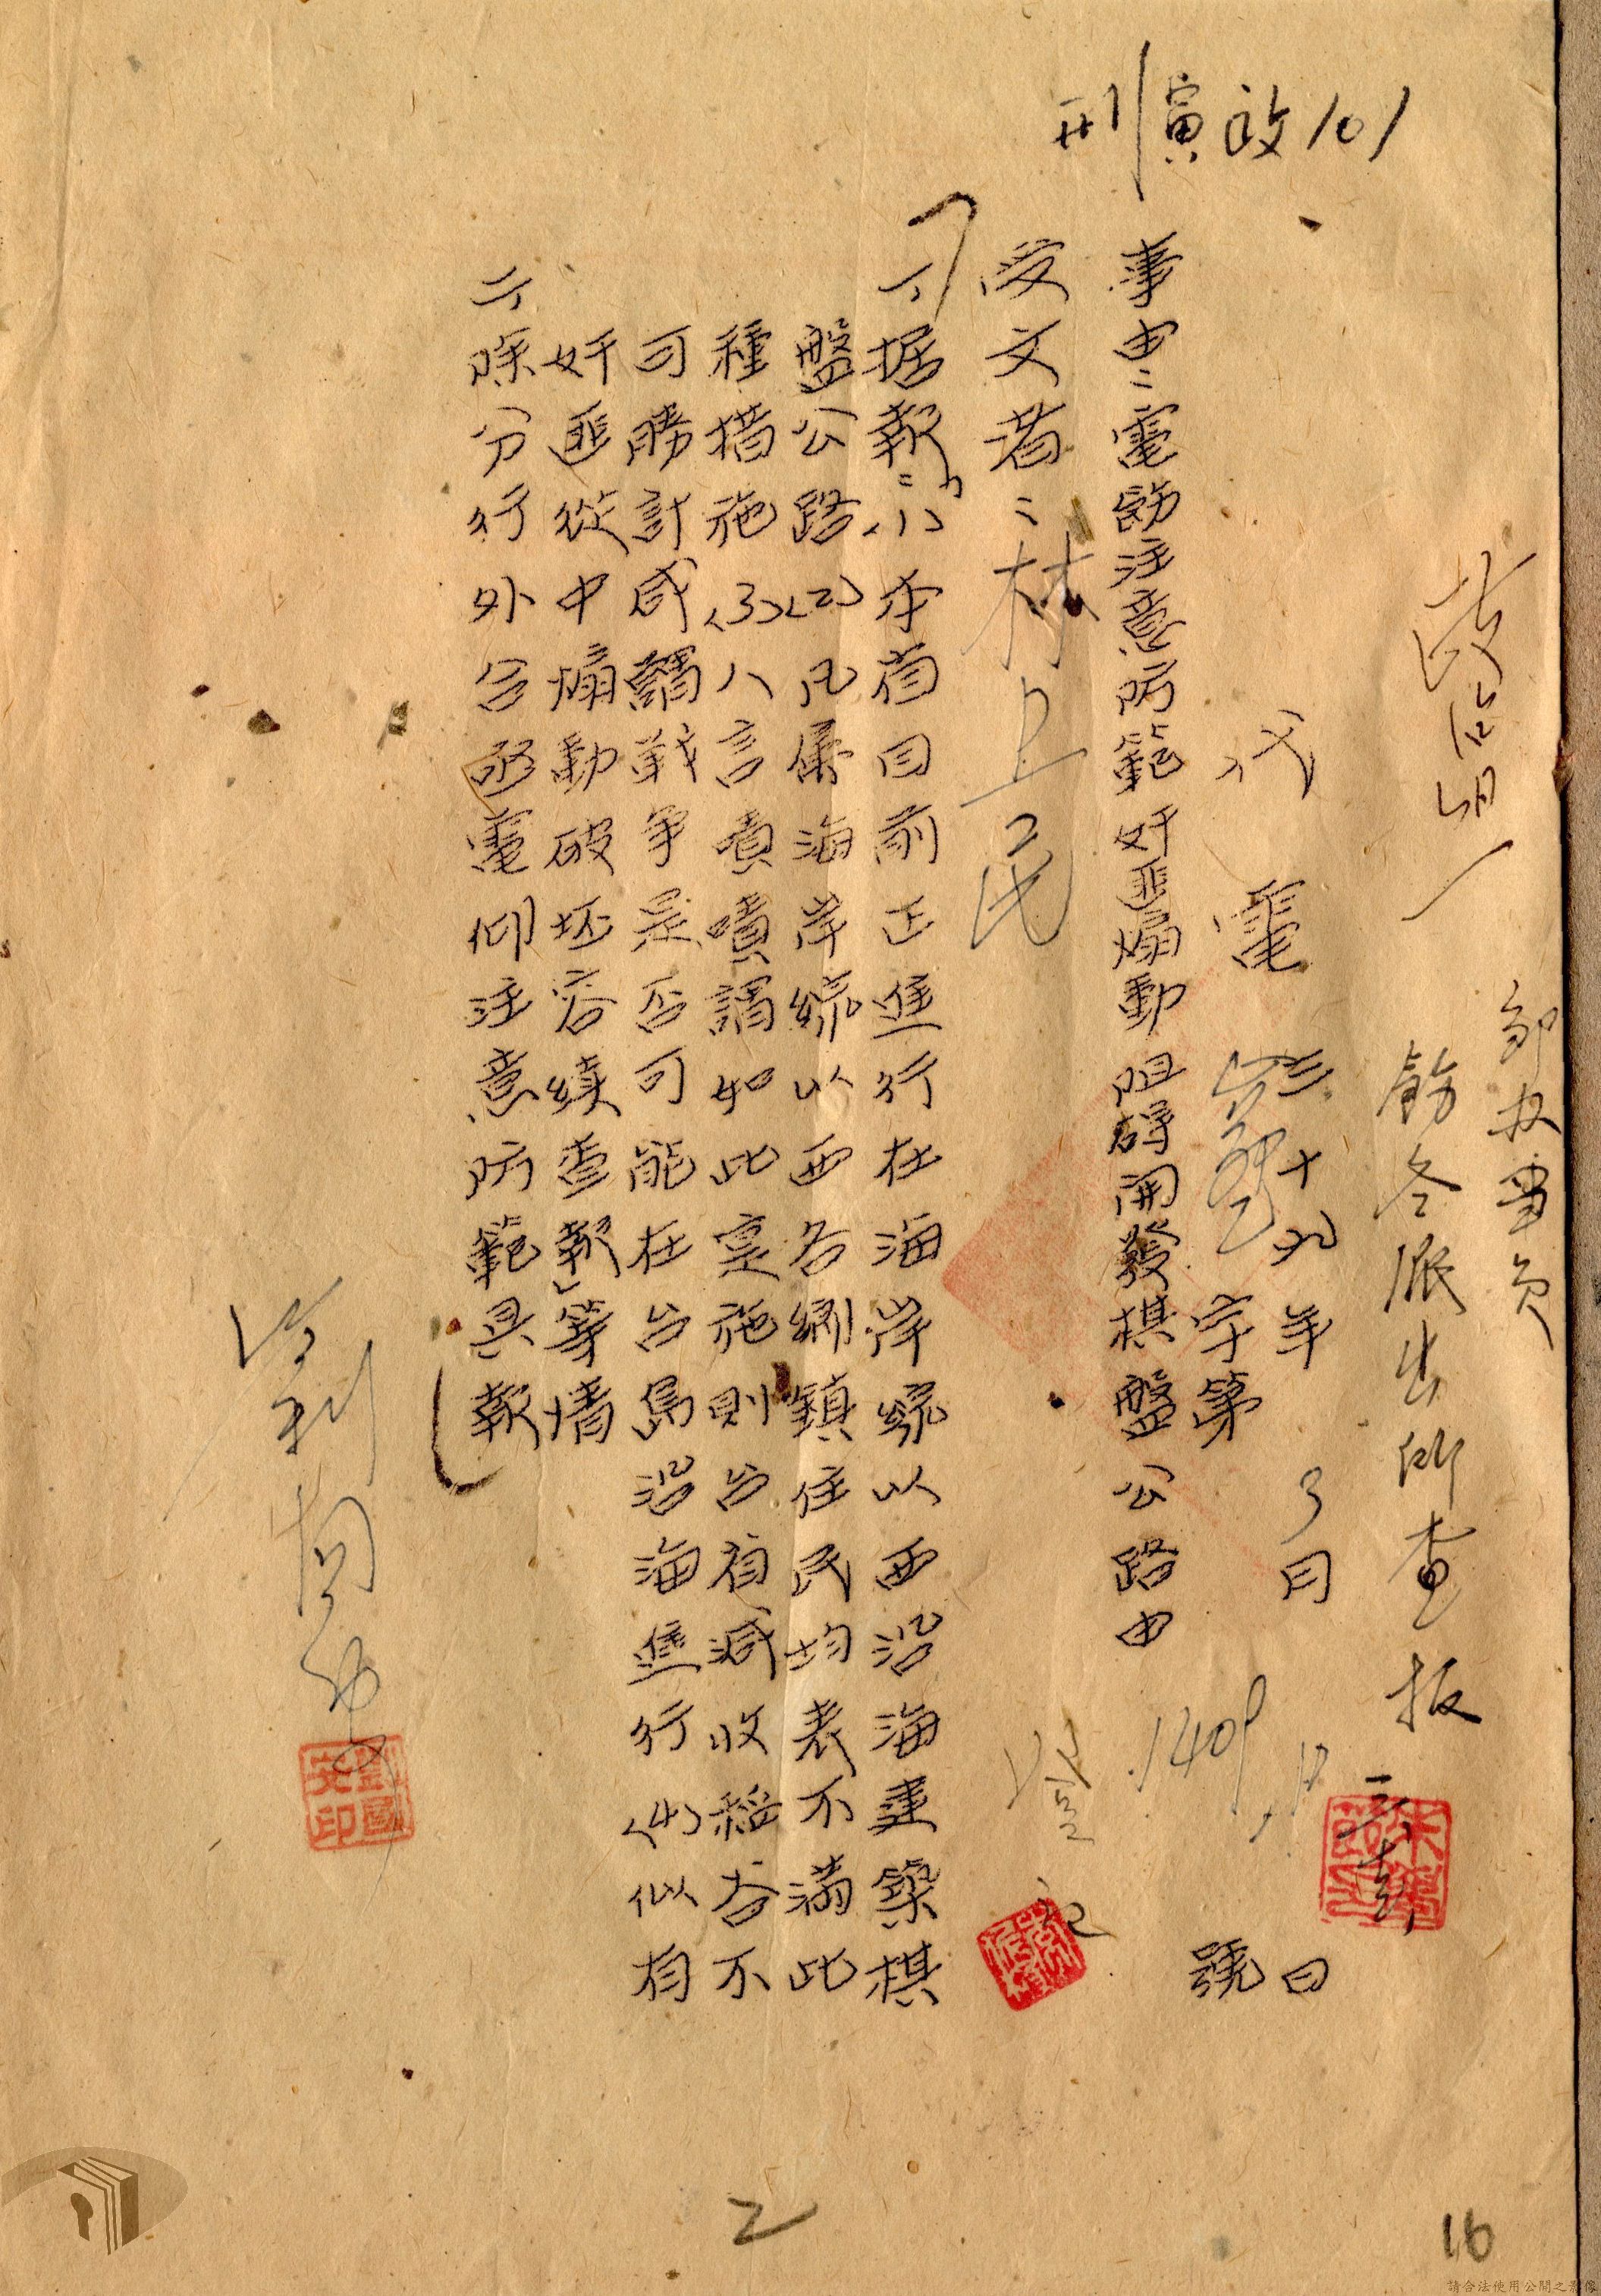 刑寅政101
邹
飭各派出所查报
代電
三十九年3月日
字第1409號
事由:電飭注意防範奸匪煽動阻碍開發棋盤公路由
受文者:林立民
一、据報:「(1)本省目前正進行在海岸線以西沿海建築棋
盤公路(2)凡屬海岸線以西各鄉鎮住民均表不滿此
種措施(3)八言嘖嘖謂如此寔施則台省減收稻谷不
可勝計咸謂戰争是否可能在台島沿海進行(4)似有
奸匪從中煽動破坯容续查報」等情
二、除分行外合亟電仰注意防範具報
劉國安印
2
16
請合法使用公開之影像